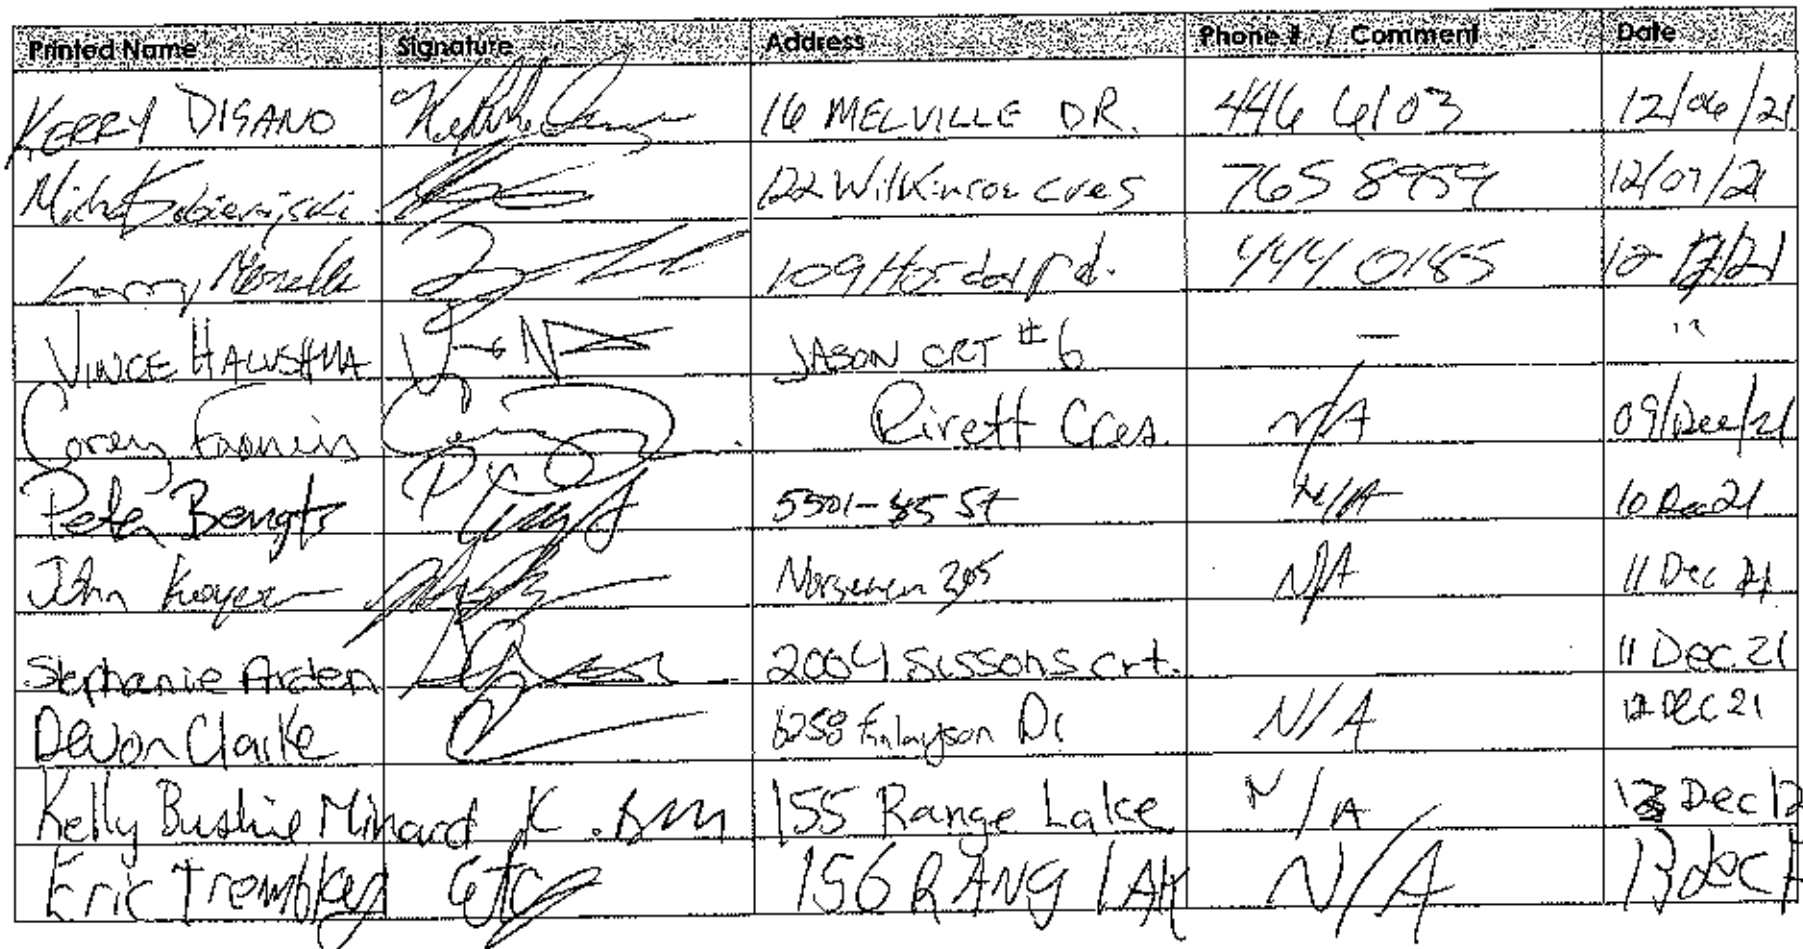 Printed Name Signature Address Phone # / Comment Date
KERRY DISANO 16 MELVILLE DR. 446 6103 12/06/21
122 Wilkinson cres 765 8959 12/07/21
Larry 109 rd. 444 0185
VINCE HALUSHNA JASON CRT #6 — "
Corey Francis Rivett Cres. N/A 09/Dec/21
Peter Bengts 5501-85 St N/A 10 Dec 21
John N/A 11 Dec 21
Stephanie Arden 2004 Sissons crt. 11 Dec. 21
Devon Clarke 6258 Finlayson Dr N/A 12 DEC 21
Kelly Bushie Minard K. BM 155 Range Lake N/A 13 Dec 12
Eric Tremblay 156 RANG LAK N/A 13 dec